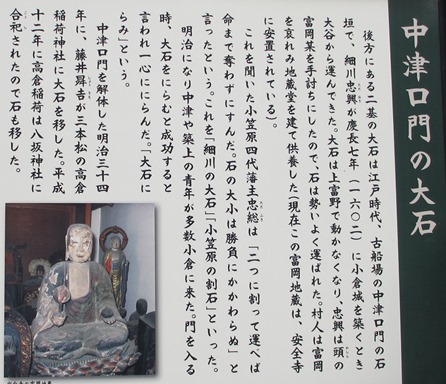 中津口門の大石
後方にある二基の大石は江戸時代、古船場の中津口門の石
垣で、細川忠興が慶長七年（一六〇二）に小倉城を築くとき
大谷から運んできた。大石は上富野で動かなくなり、忠興は頭の
富岡某を手討ちにしたので、石は勢いよく運ばれた。村人は富岡
を哀れみ地蔵堂を建て供養した（現在この富岡地蔵は、安全寺
に安置されている）。
これを聞いた小笠原四代藩主忠総は「二つに割って運べば
命まで奪わずにすんだ。石の大小は勝負にかかわらぬ」と
言ったという。これを「細川の大石」「小笠原の割石」といった。
明治になり中津や築上の青年が多数小倉に来た。門を入る
時、大石をにらむと成功すると
言われ一心ににらんだ。「大石に
らみ」という。
中津口門を解体した明治三十四
年に、藤井舜吉が三本松の高倉
稲荷神社に大石を移した。平成
十二年に高倉稲荷は八坂神社に
合祀されたので石も移した。